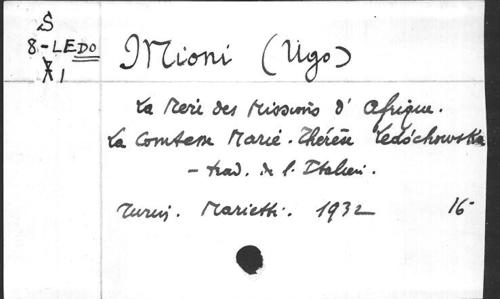 S
8-LEDO
1
Mioni (Ugo)
La Mère des Missions d' Afrique.
La Comtesse Marie-Thérèse Ledóchowska
- trad. de l'Italien.
Turin. Marietti. 1932 16-